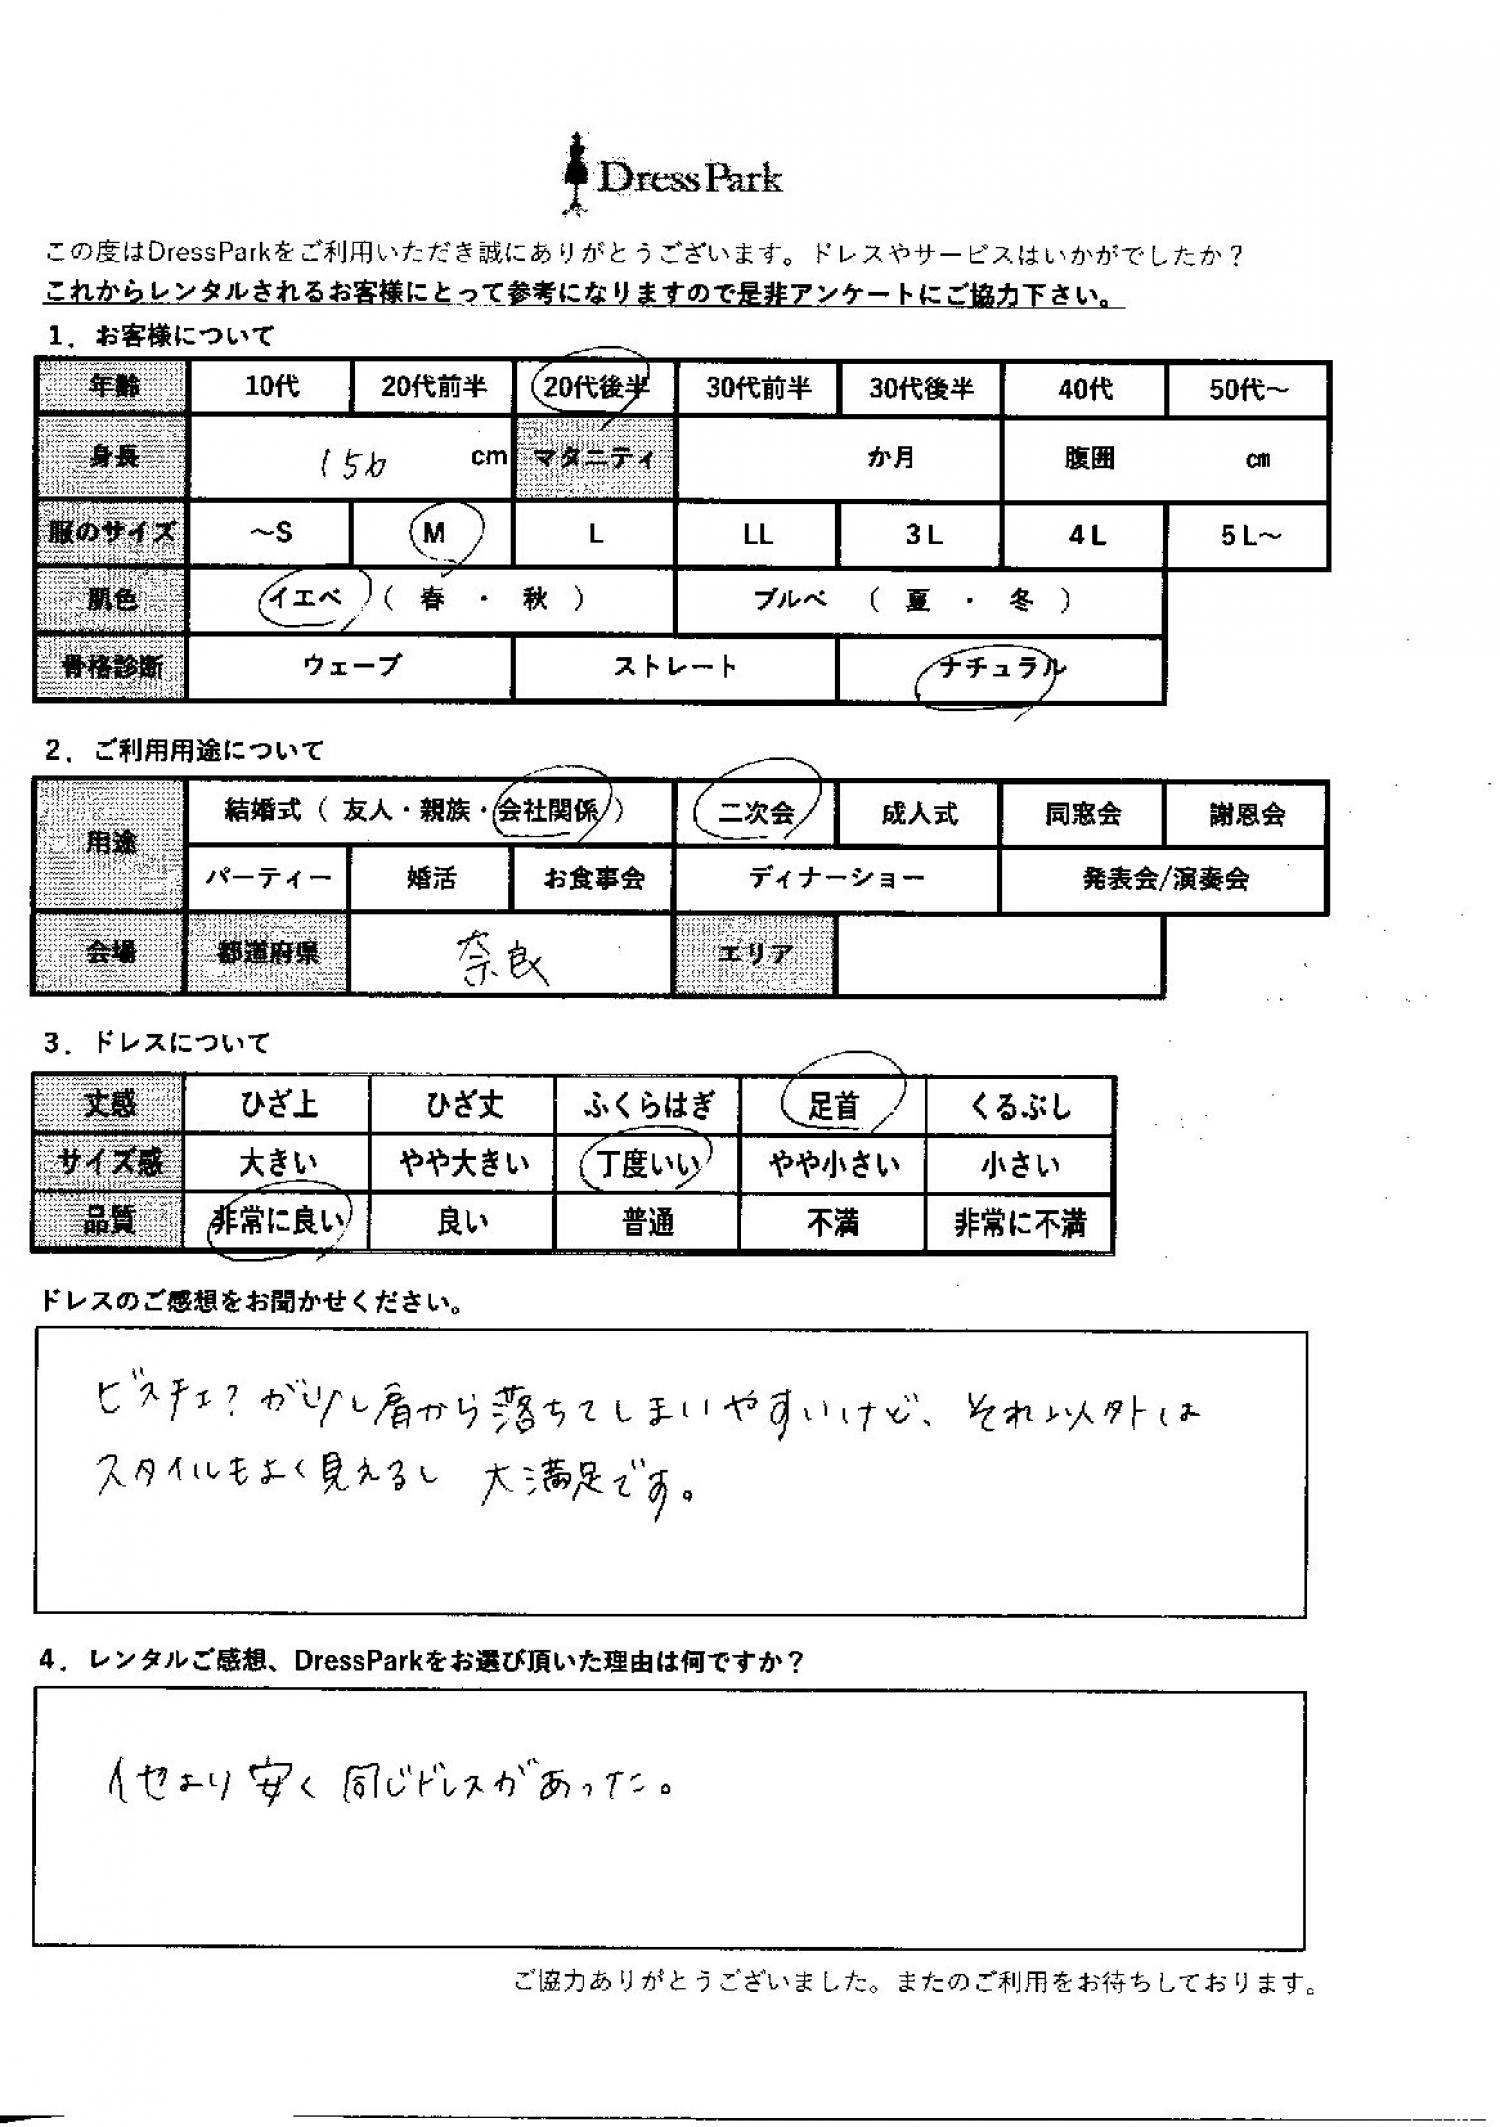 DressPark
この度はDressParkをご利用いただき誠にありがとうございます。ドレスやサービスはいかがでしたか？
これからレンタルされるお客様にとって参考になりますので是非アンケートにご協力下さい。
1．お客様について
年齢 10代 20代前半 20代後半 30代前半 30代後半 40代 50代～
身長 156 cm マタニティ か月 腹囲 cm
服のサイズ ～S M L LL 3L 4L 5L～
肌色 イエベ（ 春 ・ 秋 ） ブルベ （ 夏 ・ 冬 ）
骨格診断 ウェーブ ストレート ナチュラル
2．ご利用用途について
用途 結婚式（ 友人・親族・会社関係 ） 二次会 成人式 同窓会 謝恩会
パーティー 婚活 お食事会 ディナーショー 発表会/演奏会
会場 都道府県 奈良 エリア
3．ドレスについて
丈感 ひざ上 ひざ丈 ふくらはぎ 足首 くるぶし
サイズ感 大きい やや大きい 丁度いい やや小さい 小さい
品質 非常に良い 良い 普通 不満 非常に不満
ドレスのご感想をお聞かせください。
ビスチェ？が少し肩から落ちてしまいやすいけど、それ以外は
スタイルもよく見えるし 大満足です。
4．レンタルご感想、DressParkをお選び頂いた理由は何ですか？
他より安く同じドレスがあった。
ご協力ありがとうございました。またのご利用をお待ちしております。